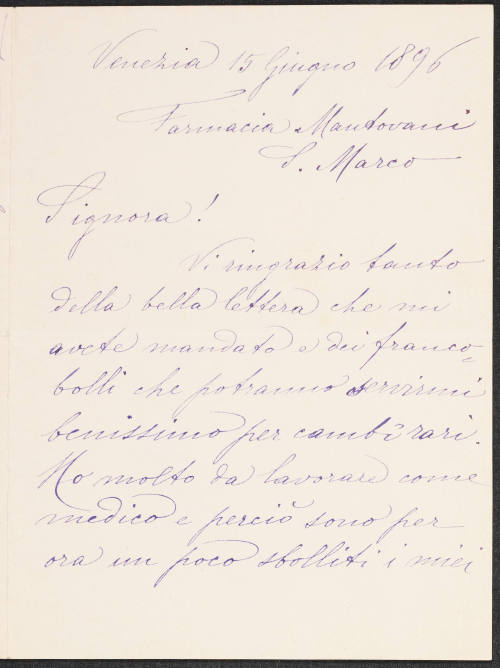 Venezia 15 Giugno 1896
Farmacia Mantovani
S. Marco
Signora!
Vi ringrazio tanto
della bella lettera che mi
avete mandato e dei franco=
bolli che potranno servirmi
benissimo per cambî rari.
Ho molto da lavorare come
medico e perciò sono per
ora un poco sbolliti i miei